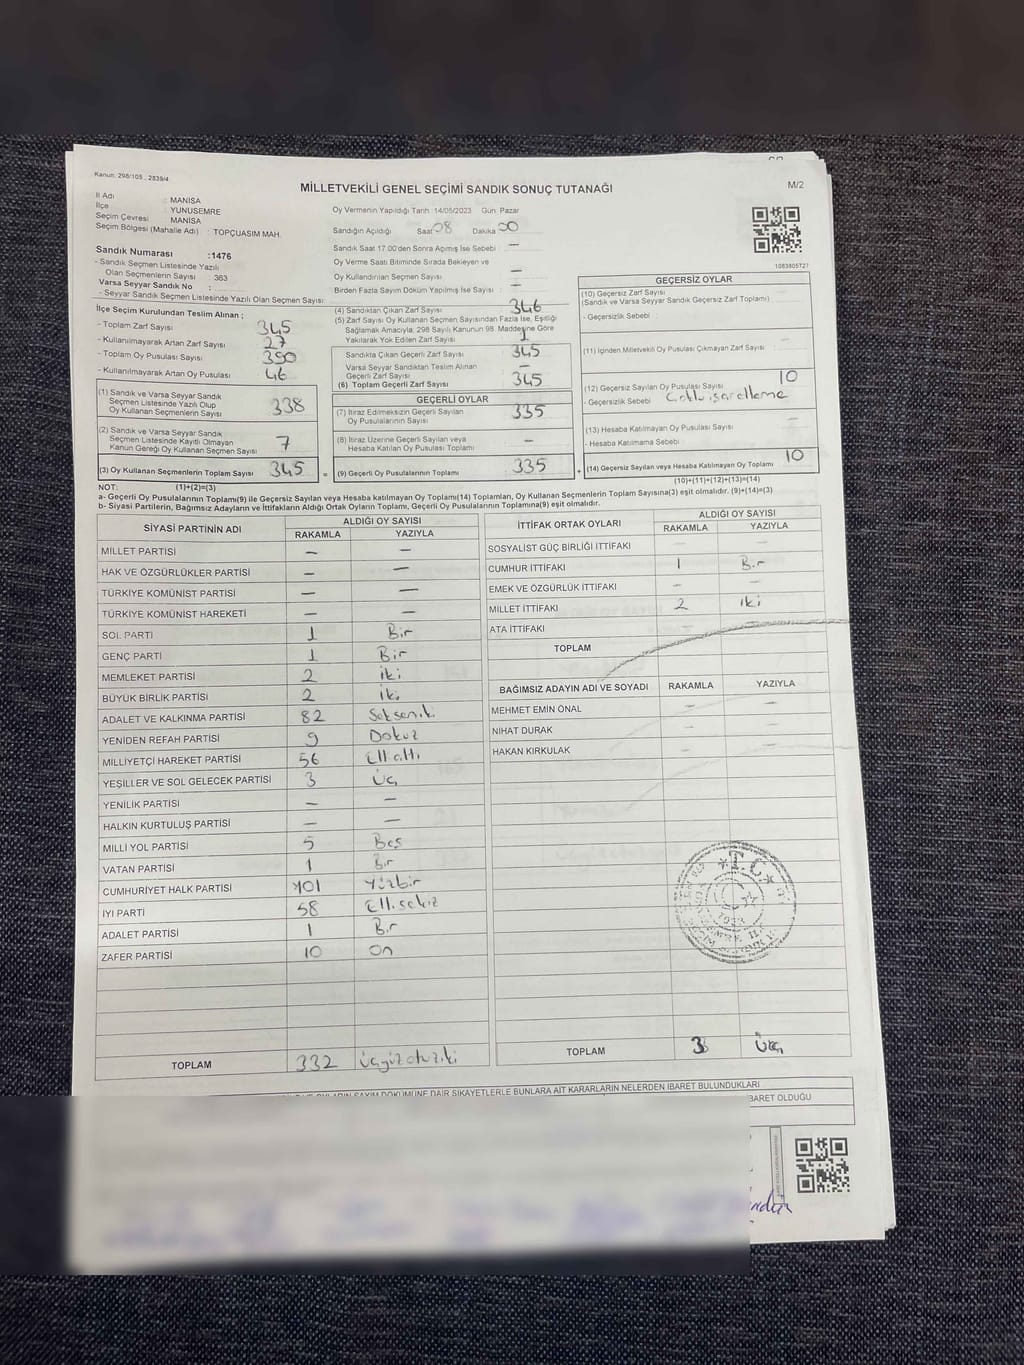 Kanun: 298/105 _ 2839/4
MİLLETVEKİLİ GENEL SEÇİMİ SANDIK SONUÇ TUTANAĞI
M/2
İl Adı : MANİSA
İlçe : YUNUSEMRE
Seçim Çevresi : MANİSA
Seçim Bölgesi (Mahalle Adı) : TOPÇUASIM MAH.
Oy Vermenin Yapıldığı Tarih: 14/05/2023 Gün: Pazar
Sandığın Açıldığı Saat 08 Dakika 00
Sandık Saat 17.00'den Sonra Açımış İse Sebebi : —
Oy Verme Saati Bitiminde Sırada Bekleyen ve
Oy Kullandırılan Seçmen Sayısı : —
Birden Fazla Sayım Döküm Yapılmış İse Sayısı : —
Sandık Numarası :1476
- Sandık Seçmen Listesinde Yazılı
Olan Seçmenlerin Sayısı : 383
Varsa Seyyar Sandık No :
- Seyyar Sandık Seçmen Listesinde Yazılı Olan Seçmen Sayısı:
İlçe Seçim Kurulundan Teslim Alınan ;
- Toplam Zarf Sayısı 345
- Kullanılmayarak Artan Zarf Sayısı 27
- Toplam Oy Pusulası Sayısı 390
- Kullanılmayarak Artan Oy Pusulası 46
(1) Sandık ve Varsa Seyyar Sandık
Seçmen Listesinde Yazılı Olup
Oy Kullanan Seçmenlerin Sayısı 338
(2) Sandık ve Varsa Seyyar Sandık
Seçmen Listesinde Kayıtlı Olmayan
Kanun Gereği Oy Kullanan Seçmen Sayısı 7
(3) Oy Kullanan Seçmenlerin Toplam Sayısı 345 =
(4) Sandıktan Çıkan Zarf Sayısı 346
(5) Zarf Sayısı Oy Kullanan Seçmen Sayısından Fazla İse, Eşitliği
Sağlamak Amacıyla, 298 Sayılı Kanunun 98. Maddesine Göre
Yakılarak Yok Edilen Zarf Sayısı 1
Sandıkta Çıkan Geçerli Zarf Sayısı 345
Varsa Seyyar Sandıktan Teslim Alınan
Geçerli Zarf Sayısı —
(6) Toplam Geçerli Zarf Sayısı 345
GEÇERLİ OYLAR
(7) İtiraz Edilmeksizin Geçerli Sayılan
Oy Pusulalarının Sayısı 335
(8) İtiraz Üzerine Geçerli Sayılan veya
Hesaba Katılan Oy Pusulası Toplamı —
(9) Geçerli Oy Pusulalarının Toplamı 335 +
1083805727
GEÇERSİZ OYLAR
(10) Geçersiz Zarf Sayısı
(Sandık ve Varsa Seyyar Sandık Geçersiz Zarf Toplamı) —
- Geçersizlik Sebebi :
(11) İçinden Milletvekili Oy Pusulası Çıkmayan Zarf Sayısı —
(12) Geçersiz Sayılan Oy Pusulası Sayısı 10
- Geçersizlik Sebebi :
(13) Hesaba Katılmayan Oy Pusulası Sayısı —
- Hesaba Katılmama Sebebi :
(14) Geçersiz Sayılan veya Hesaba Katılmayan Oy Toplamı 10
NOT: (1)+(2)=(3) (10)+(11)+(12)+(13)=(14)
a- Geçerli Oy Pusulalarının Toplamı(9) ile Geçersiz Sayılan veya Hesaba katılmayan Oy Toplamı(14) Toplamları, Oy Kullanan Seçmenlerin Toplam Sayısına(3) eşit olmalıdır. (9)+(14)=(3)
b- Siyasi Partilerin, Bağımsız Adayların ve İttifakların Aldığı Ortak Oyların Toplamı, Geçerli Oy Pusulalarının Toplamına(9) eşit olmalıdır.
SİYASİ PARTİNİN ADI ALDIĞI OY SAYISI
RAKAMLA YAZIYLA
MİLLET PARTİSİ — —
HAK VE ÖZGÜRLÜKLER PARTİSİ — —
TÜRKİYE KOMÜNİST PARTİSİ — —
TÜRKİYE KOMÜNİST HAREKETİ — —
SOL PARTİ 1 Bir
GENÇ PARTİ 1 Bir
MEMLEKET PARTİSİ 2 iki
BÜYÜK BİRLİK PARTİSİ 2 iki
ADALET VE KALKINMA PARTİSİ 82 Seksenik
YENİDEN REFAH PARTİSİ 9 Dokuz
MİLLİYETÇİ HAREKET PARTİSİ 56 Ellialtı
YEŞİLLER VE SOL GELECEK PARTİSİ 3 Üç
YENİLİK PARTİSİ — —
HALKIN KURTULUŞ PARTİSİ — —
MİLLİ YOL PARTİSİ 5 Beş
VATAN PARTİSİ 1 Bir
CUMHURİYET HALK PARTİSİ 101 Yüzbir
İYİ PARTİ 58 Ellisekiz
ADALET PARTİSİ 1 Bir
ZAFER PARTİSİ 10 On
TOPLAM 332 Üçyüzotuziki
İTTİFAK ORTAK OYLARI ALDIĞI OY SAYISI
RAKAMLA YAZIYLA
SOSYALİST GÜÇ BİRLİĞİ İTTİFAKI — —
CUMHUR İTTİFAKI 1 Bir
EMEK VE ÖZGÜRLÜK İTTİFAKI — —
MİLLET İTTİFAKI 2 iki
ATA İTTİFAKI —
TOPLAM
BAĞIMSIZ ADAYIN ADI VE SOYADI RAKAMLA YAZIYLA
MEHMET EMİN ÖNAL — —
NİHAT DURAK — —
HAKAN KIRKULAK — —
T.C.
TOPLAM 3 Üç
SAYIM DÖKÜMÜNE DAİR ŞİKAYETLERLE BUNLARA AİT KARARLARIN NELERDEN İBARET BULUNDUKLARI
BARET OLDUĞU